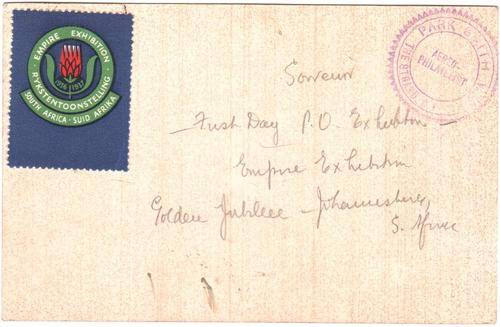 EMPIRE EXHIBITION
1936 1937
RYKSTENTOONSTELLING
SOUTH AFRICA · SUID AFRIKA
PARK
AERO-
PHILATELIST
Souvenir
First Day P.O. Exhibition
Empire Exhibition
Golden Jubilee Johannesburg
S. Africa